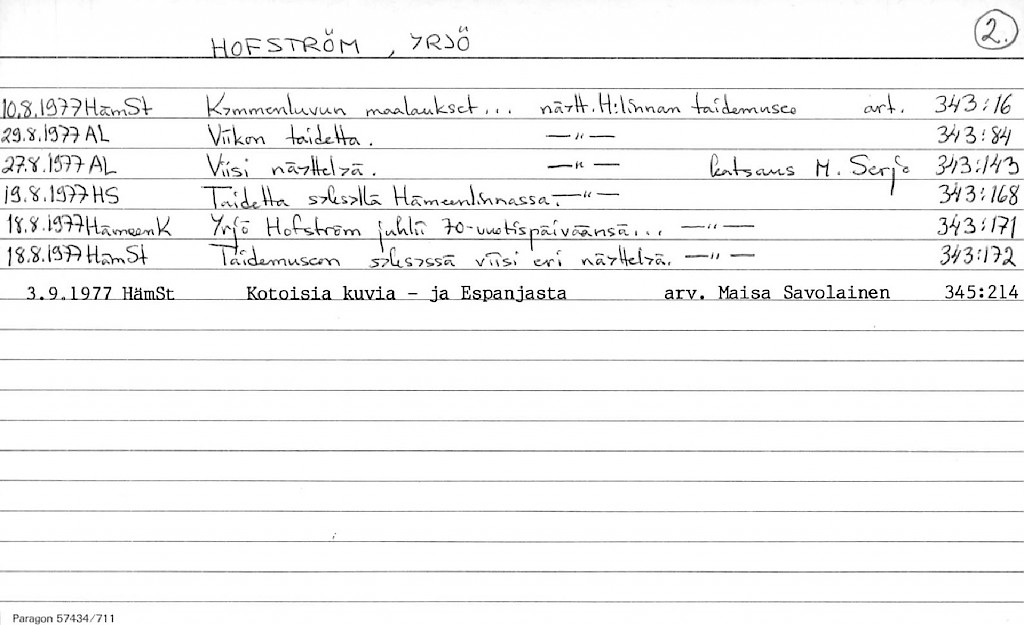 HOFSTRÖM, YRJÖ 2.
10.8.1977 HämSt Kymmenluvun maalaukset... näytt. H:linnan taidemuseo art. 343:16
29.8.1977 AL Viikon taidetta. —"— 343:84
27.8.1977 AL Viisi näyttelyä. —"— katsaus M. Serjo 343:143
19.8.1977 HS Taidetta syksyllä Hämeenlinnassa. —"— 343:168
18.8.1977 HämeenK Yrjö Hofström juhlii 70-vuotispäiväänsä... —"— 343:171
18.8.1977 HämSt Taidemuseon syksyssä viisi eri näyttelyä. —"— 343:172
3.9.1977 HämSt Kotoisia kuvia - ja Espanjasta arv. Maisa Savolainen 345:214
Paragon 57434/711